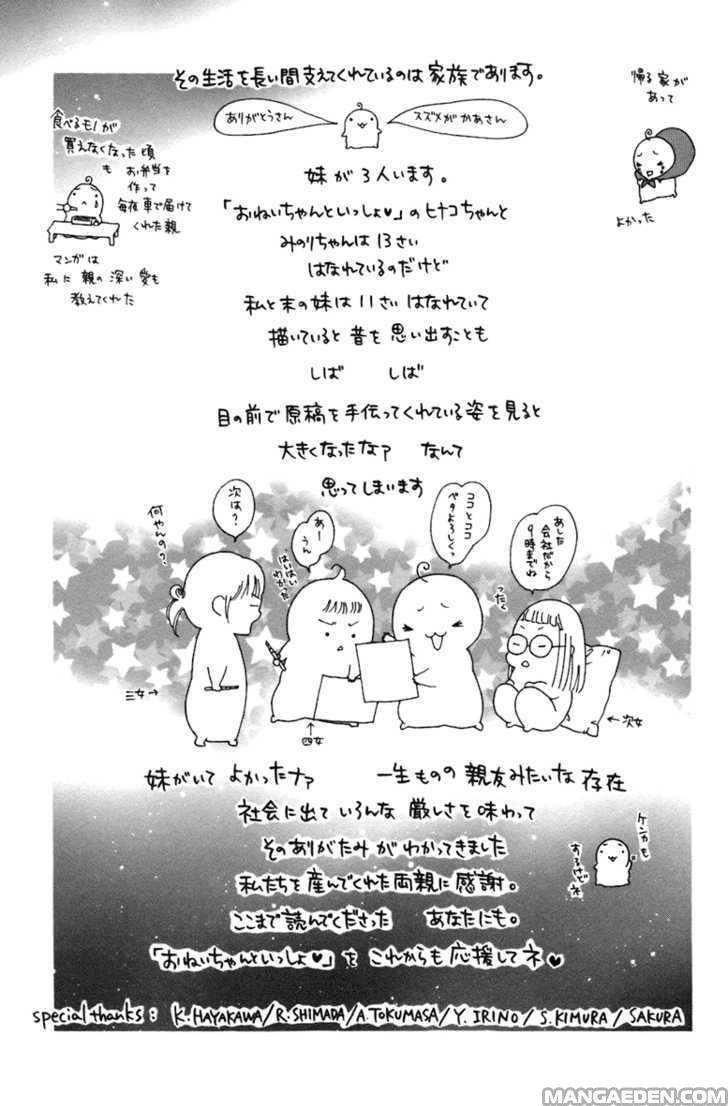 その生活を長い間支えてくれているのは家族であります。
ありがとうさん
スズメががかあさん
帰る家が
あって
よかった
食べるモノが
買えなくなった頃
も お弁当を
作って
毎夜車で届けて
くれた親
マンガは
私に親の深い愛も
教えてくれた
妹が3人います。
「おねいちゃんといっしょ♥」のヒナコちゃんと
みのりちゃんは13さい
はなれているのだけど
私と末の妹は11さいはなれていて
描いていると昔を思い出すことも
しば しば
目の前で原稿を手伝ってくれている姿を見ると
大きくなったなァ なんて
思ってしまいます
何やんの?
次は?
あー
うん
はいはい
わかった
ココとココ
ベタよろしく。
あした
会社だから
9時までね
ったく
三女→
四女
←次女
妹がいて よかったナァ 一生ものの親友みたいな存在
社会に出ていろんな厳しさを味わって
そのありがたみがわかってきました
ケンカも
するけどネ
私たちを産んでくれた両親に感謝。
ここまで読んでくださった あなたにも。
「おねいちゃんといっしょ♥」をこれからも応援してネ♥
special thanks: K.HAYAKAWA/R.SHIMADA/A.TOKUMASA/Y.IRINO/S.KIMURA/SAKURA
MANGAEDEN.COM